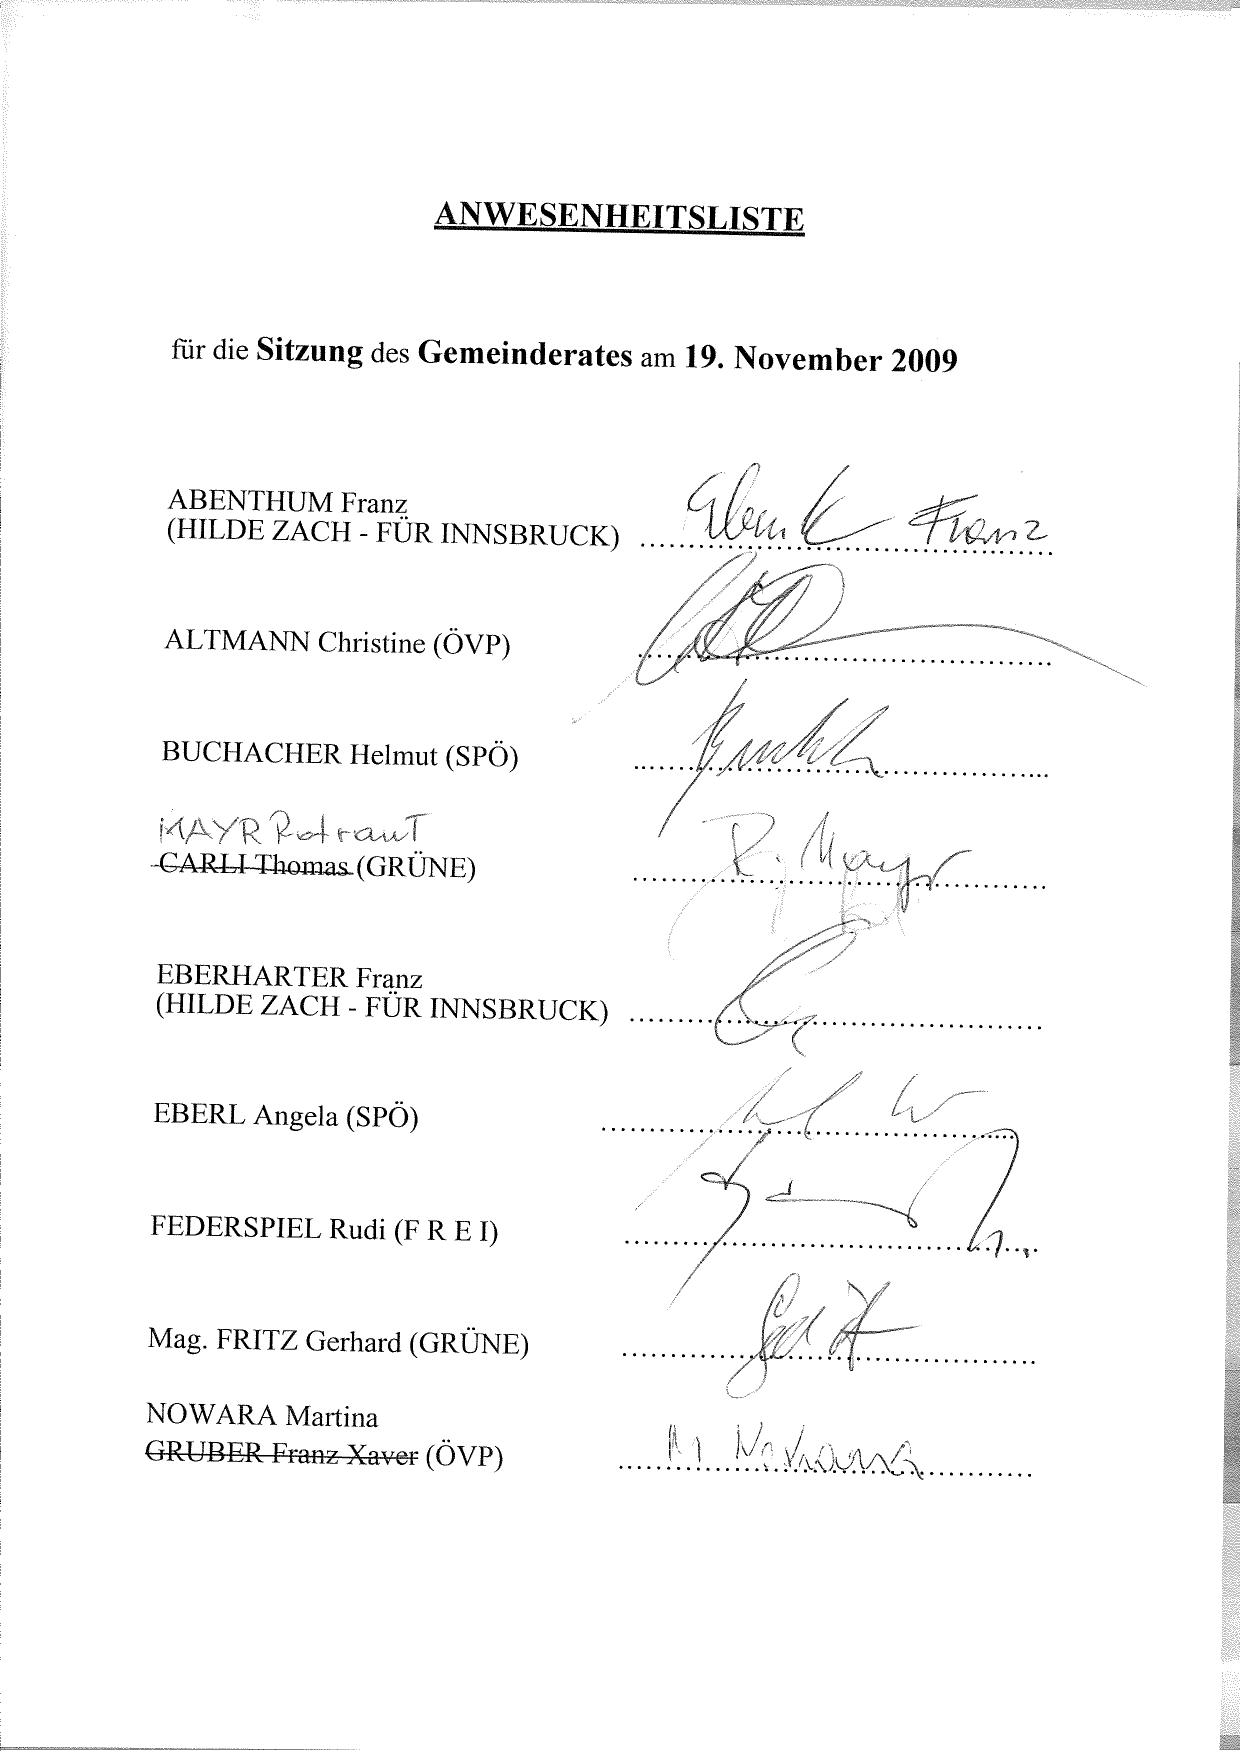 ANWESENHEITSLISTE
für die Sitzung des Gemeinderates am 19. November 2009
ABENTHUM Franz
(HILDE ZACH - FÜR INNSBRUCK) Franz
ALTMANN Christine (ÖVP)
BUCHACHER Helmut (SPÖ)
MAYR Rotraut
CARLI Thomas (GRÜNE) R. Mayr
EBERHARTER Franz
(HILDE ZACH - FÜR INNSBRUCK)
EBERL Angela (SPÖ)
FEDERSPIEL Rudi (F R E I)
Mag. FRITZ Gerhard (GRÜNE)
NOWARA Martina
GRUBER Franz Xaver (ÖVP) M Nowara